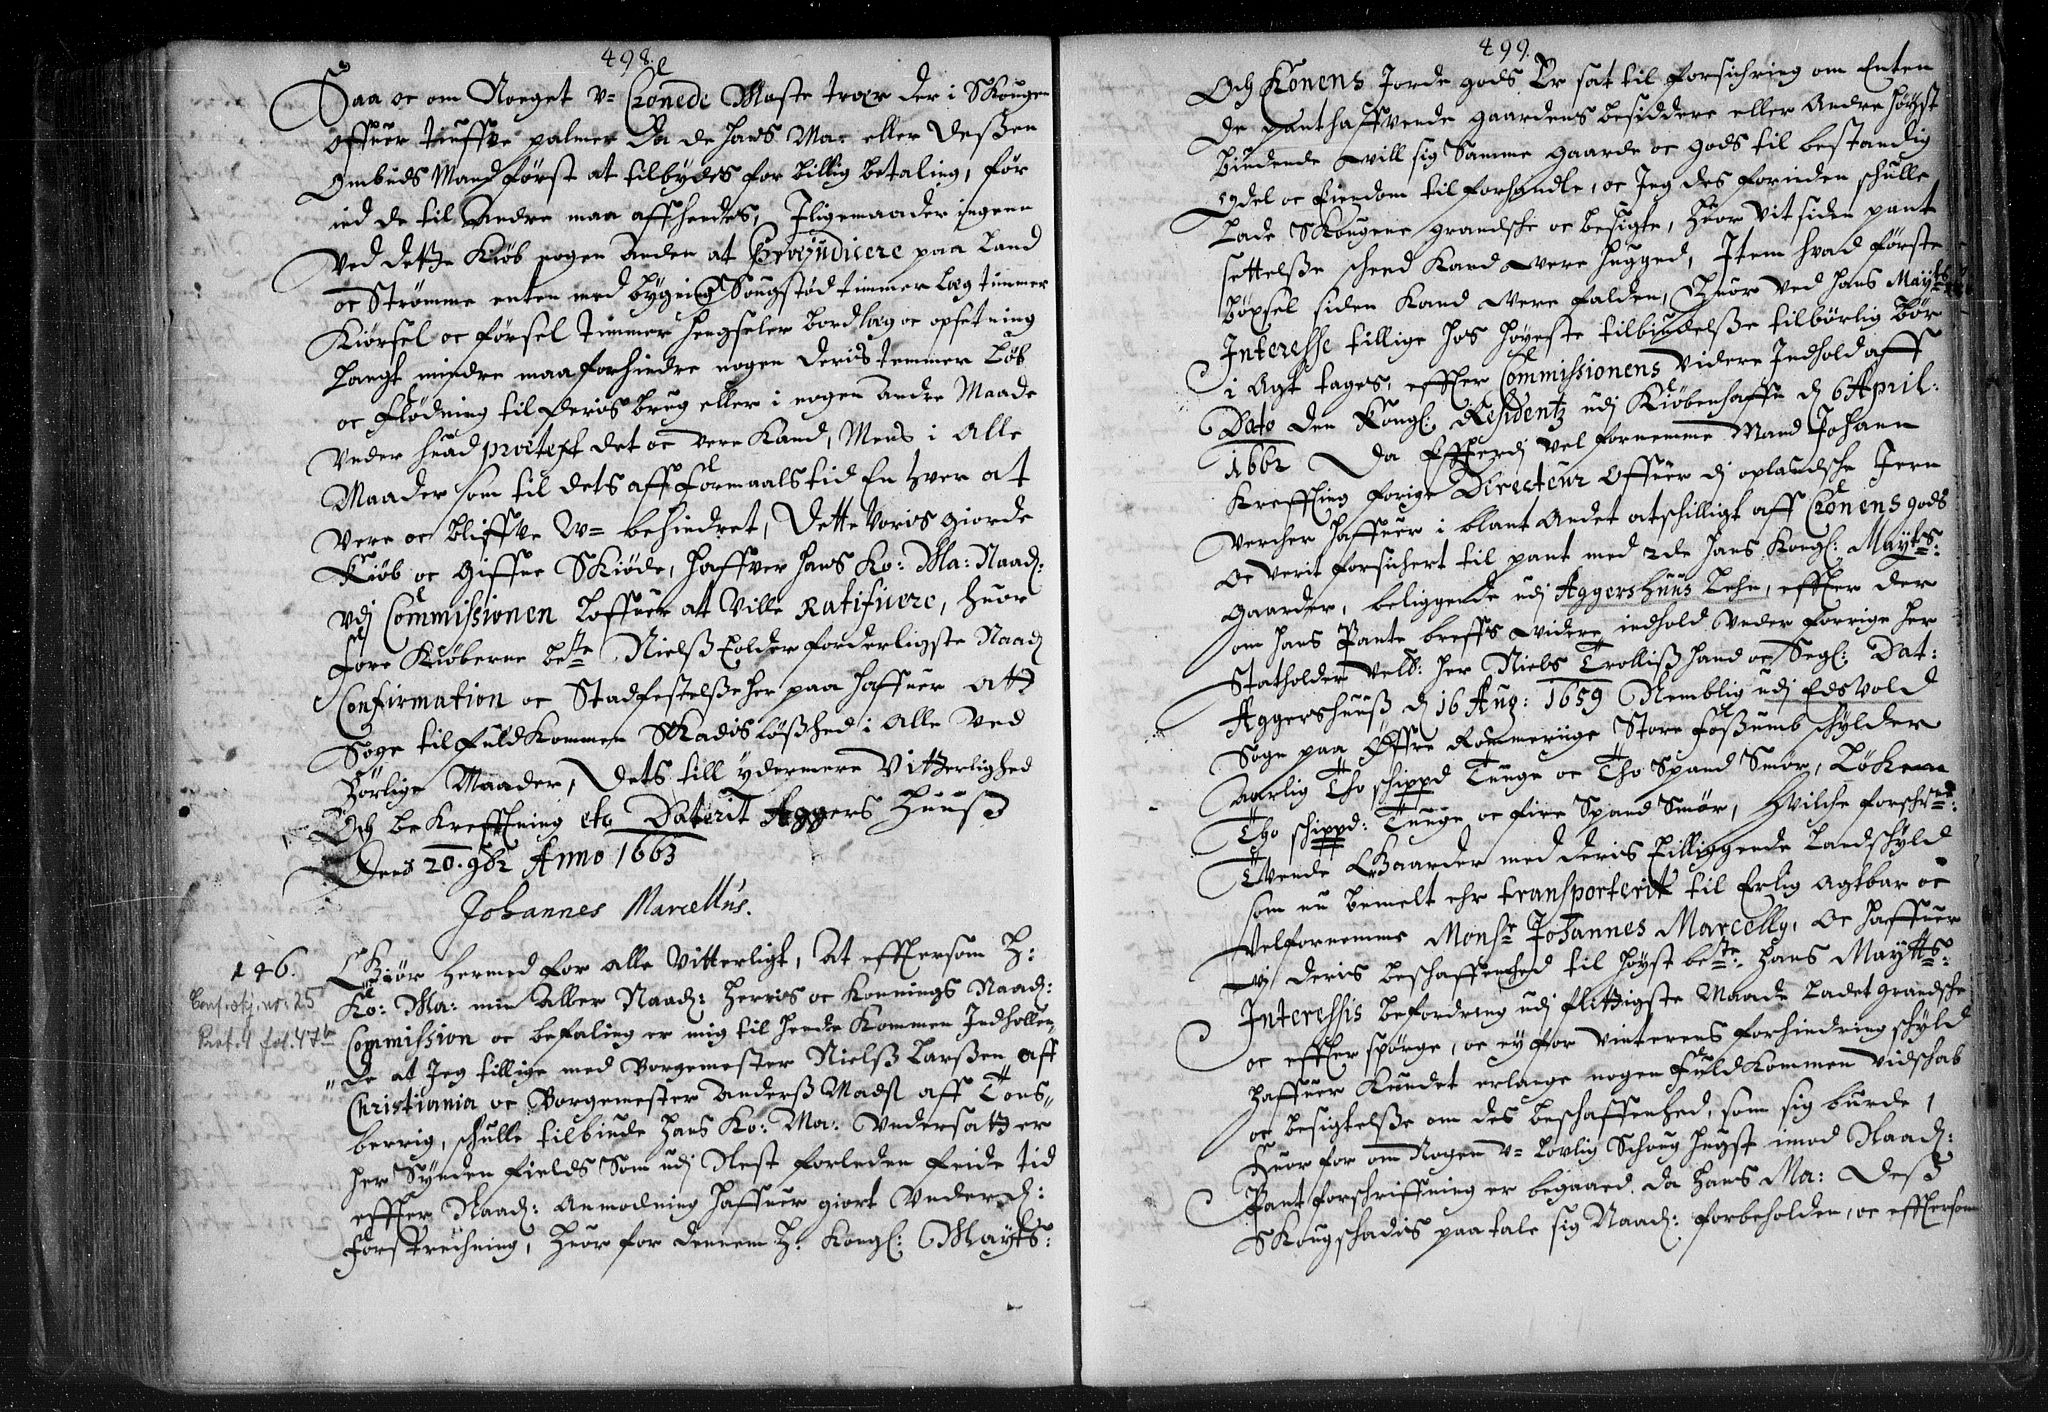 498.
Saa oc om Noeget v= Cronede Maste trær der i Skougen
offuer tuffve palmer da de hans Ma: eller deßen
Ombuds Mand först at tilbydes for billig betaling, för
ind de til andre maa affhendes, Jligemaader ingenn
Ved dette Kiöb nogen anden at Præjudicere paa Land
oc Strömme enten med bygning Sougstöd timmer læg timmer
Kiörsel oc förfel timmer hengseler bord læg oc opsetning
Langt mindre maa forhindre nogen deris temmer Löb
oc flödning til deris brug eller i nogen andre Maade
Vnder huad prætext det oc vere Kand, Mens i Alle
Maader som til dets aff Formaals tid En hver at
vere oc bliffve V= behindret, Dette Voris giorde
Kiöb oc giffne Skiöde, haffver hans Ko: Ma: Naad:
vdj Commissionen loffuer at Ville Ratificere, huor
fore Kiöberne be:te Nielß Tolder forderligste Naad:
Confirmation oc Stadfestelße her paa haffuer att
Söge til fuldkommen Skadislößhed i Alle Ved
börlige Maader, Dets till ydermere Vitterlighed
Och bekrefftning etc Daterit Aggers Huuß
Den 20. 9br Anno 1663
Johannes Marcellus.
146.
Giör hermed for alle Vitterligt, at efftersom H:
Ko: Ma: min Aller Naad: Herris oc Konnings Naad:
Commission oc befaling er mig til hende Kommen Indhollen„
„de at Jeg tillige med Borgemester Nielß Larßen aff
Christiania oc Borgemester Anderß Madß aff Tons„
berrig, schulle tilbinde Hans Ko: Ma: Vndersatter
her Synden fields som udj Nest forleden feide tid
effter Naad: Anmodning haffuer giort Vnder d:
forstrechning, huor for dennem H: Kongl: Mayts:
499.
Och Konens Jorde gods Er sat til forsichring om Enten
De panthaffvende gaardens besiddere eller Andre höyst
biudende Will sig Samme gaarde oc gods til bestandig
Odel oc Eiendom tilforhandle, oc Jeg des foruden schulle
Lade Skougene grandsche oc besigte, huor vit siden pant
settelße scheed Kand were hugged, Item hvad förste
böxsel siden Kand Were falden, Huor Ved hans Mayts
Interesse tillige hos höyeste tilbudelße tilbörlig bör
i Agt tages, effter Commissionens Videre Indhold aff
Dato den Kongl: Residentz udj Kiöbenhaffn d 6 April:
1662 Da Efftterdj Vel fornemme Mand Johann
Kreffting forige Directeur offuer dj oplandsche Jern
Vercher haffuer i blant Andet atschilligt aff Cronens gods
oc Verit forsichert til pant med 2de Hans Kongl: Mayts:
gaarder, beliggende udj Aggershuus Lehn, effter der
om hans Pante breffs videre indhold Vnder forrige her
Statholder Velb: her Niels Trolliß hand oc Segl: Dat:
Aggershuuß d 16 Aug: 1659 Nemblig udj Edsvold
Sogn paa Öffre Rommeriige Store Foßumb schylder
Aarlig Tho schippd Tunge oc Tho Spand Smör, Löhren
Tho schippd: Tunge oc fire Spand Smör, Hvilche forschr:ne
Tvende Gaarder med deris tilliggende Landschyld
som nu bemelt ehr transporterit til Erlig Agtbar oc
Velfornemme Mons:r Johannes Marcelly, oc haffuer
vi deris beschaffenhed til höyst be:te Hans Maytts:
Interessis befordring udj flittigste Maade Ladet grandsche
oc effter spörge, oc ey for Vinterens forhindring schyld
haffuer Kundet erlange nogen fuldkommen Vidschab
oc besigtelße om des beschaffenhed, som sig burde,
huor for om Nogen V= Lovlig Schoug hugst imod Naad:
Pantforschriffning er begaaed. da Hans Ma: Deß
Skougschadis paa tale sig Naad: forbeholden, oc efftersom